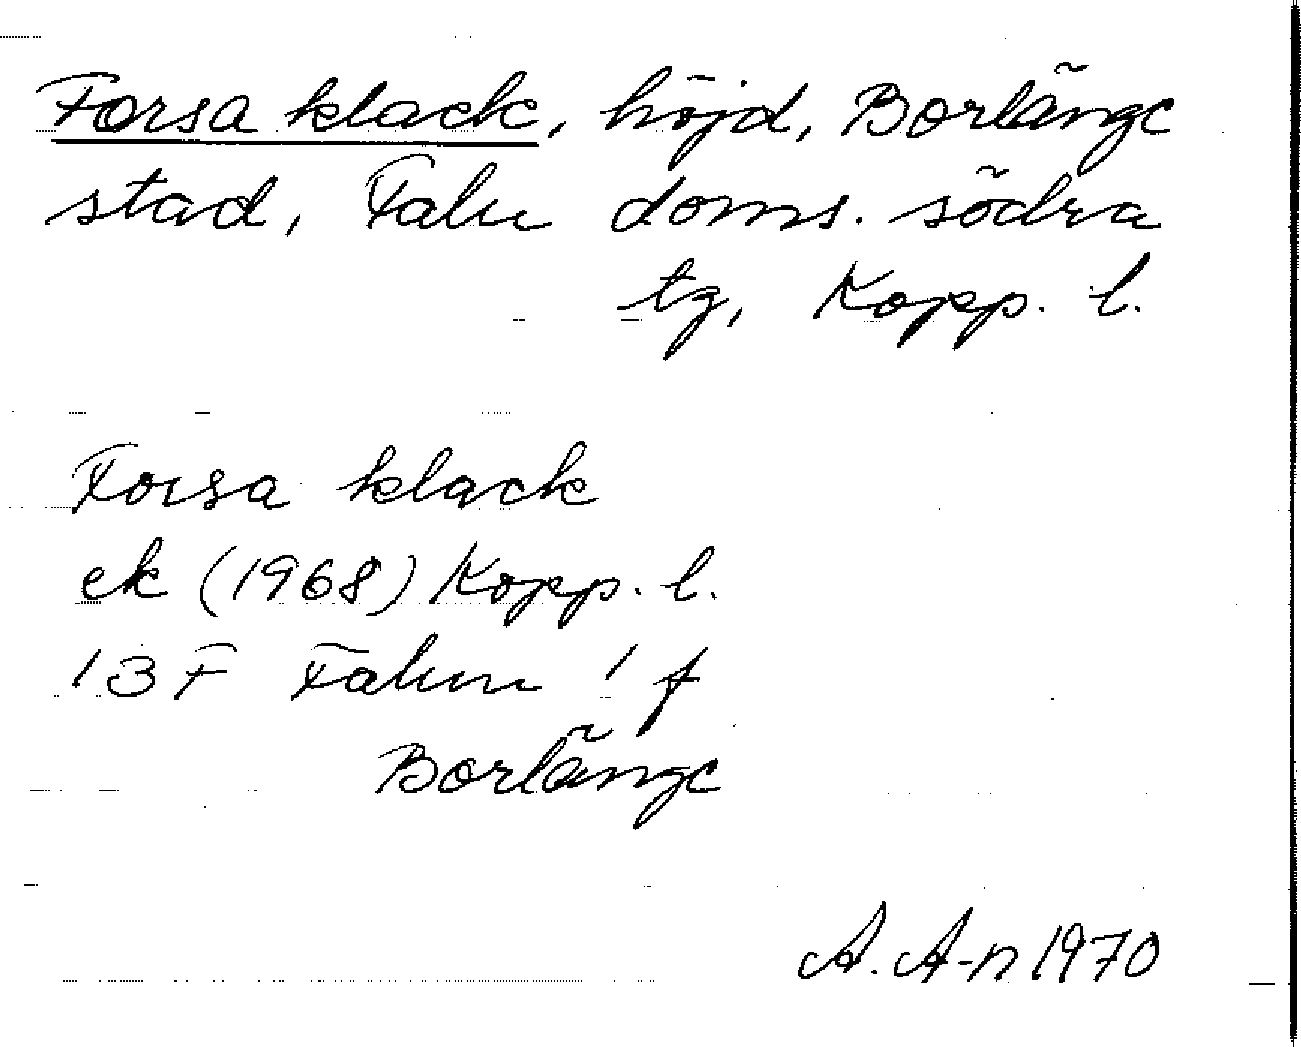 Forsa klack, höjd, Borlänge
stad, Falu doms. södra
tg, Kopp. l.
Forsa klack
ek (1968) Kopp. l.
13 F Falun 1 f
Borlänge
A. A-n 1970